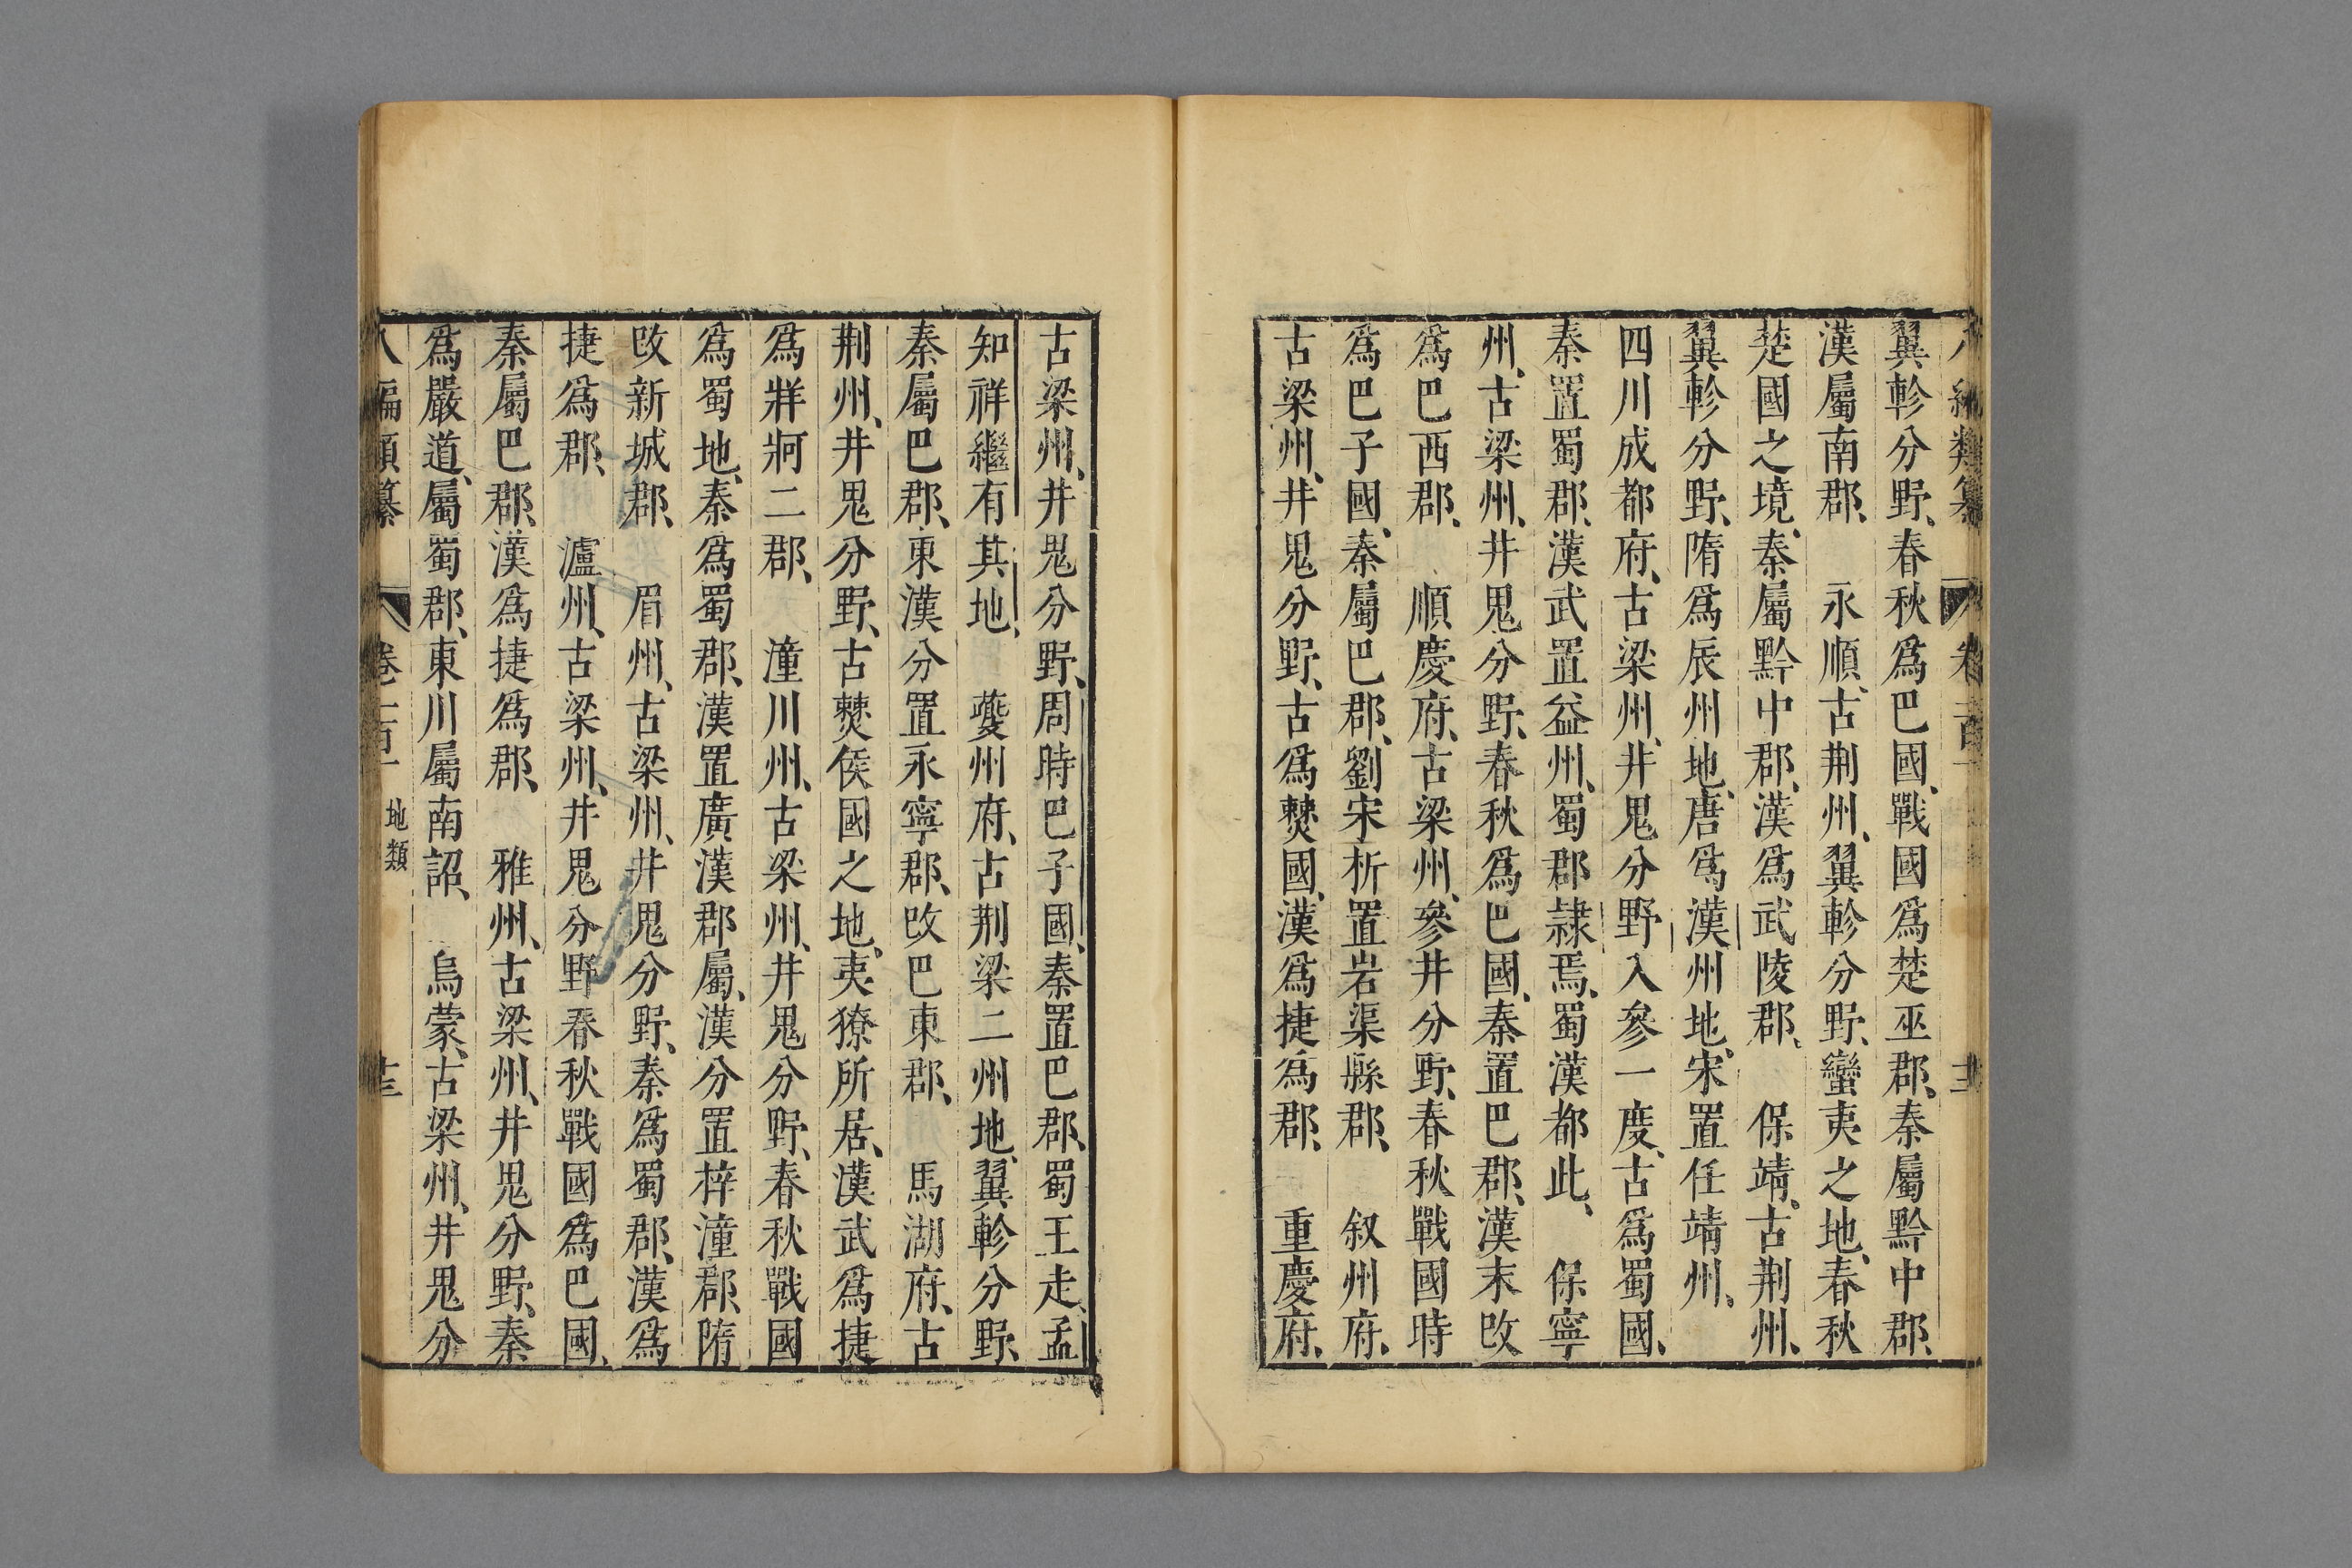 翼軫分野、春秋爲巴國、戰國爲楚巫郡、秦屬黔中郡、
漢屬南郡、　永順、古荆州、翼軫分野、蠻夷之地、春秋
楚國之境、秦屬黔中郡、漢爲武陵郡、　保靖、古荆州、
翼軫分野、隋爲辰州地、唐爲漢州地、宋置任靖州、
四川成都府、古梁州、井鬼分野入參一度、古爲蜀國、
秦置蜀郡、漢武置益州、蜀郡隷焉、蜀漢都此、　保寧
州、古梁州、井鬼分野、春秋爲巴國、秦置巴郡、漢末改
爲巴西郡、　順慶府、古梁州、參井分野、春秋戰國時
爲巴子國、秦屬巴郡、劉宋析置岩渠縣郡、　叙州府、
古梁州、井鬼分野、古爲僰國、漢爲捷爲郡、　重慶府、
古梁州、井鬼分野、周時巴子國、秦置巴郡、蜀王走、孟
知祥繼有其地、　夔州府、古荆梁二州地、翼軫分野、
秦屬巴郡、東漢分置永寧郡、改巴東郡、　馬湖府、古
荆州、井鬼分野、古僰侯國之地、夷獠所居、漢武爲捷
爲牂牁二郡、　潼川州、古梁州、井鬼分野、春秋戰國
爲蜀地、秦爲蜀郡、漢置廣漢郡屬、漢分置梓潼郡、隋
改新城郡、　眉州、古梁州、井鬼分野、秦爲蜀郡、漢爲
捷爲郡、　瀘州、古梁州、井鬼分野春秋戰國爲巴國、
秦屬巴郡、漢爲捷爲郡、　雅州、古梁州、井鬼分野、秦
爲嚴道、屬蜀郡、東川屬南詔、　烏蒙、古梁州、井鬼分
八編類纂　卷一百一　地類　十三